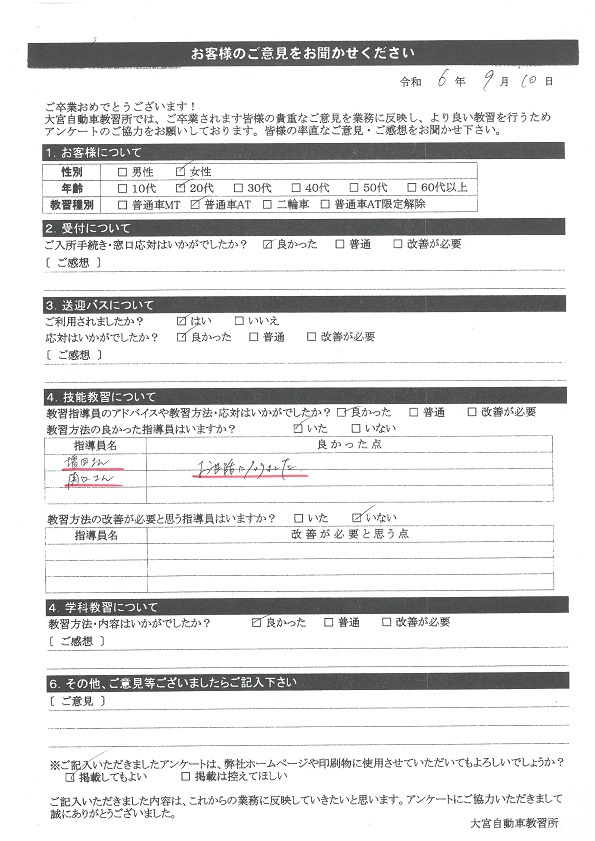 お客様のご意見をお聞かせください
令和 6 年 9 月 10 日
ご卒業おめでとうございます！
大宮自動車教習所では、ご卒業されます皆様の貴重なご意見を業務に反映し、より良い教習を行うため
アンケートのご協力をお願いしております。皆様の率直なご意見・ご感想をお聞かせ下さい。
1. お客様について
性別 □ 男性 ☑ 女性
年齢 □ 10代 ☑ 20代 □ 30代 □ 40代 □ 50代 □ 60代以上
教習種別 □ 普通車MT ☑ 普通車AT □ 二輪車 □ 普通車AT限定解除
2. 受付について
ご入所手続き・窓口応対はいかがでしたか？ ☑ 良かった □ 普通 □ 改善が必要
〔 ご感想 〕
3. 送迎バスについて
ご利用されましたか？ ☑ はい □ いいえ
応対はいかがでしたか？ ☑ 良かった □ 普通 □ 改善が必要
〔 ご感想 〕
4. 技能教習について
教習指導員のアドバイスや教習方法・応対はいかがでしたか？ ☑ 良かった □ 普通 □ 改善が必要
教習方法の良かった指導員はいますか？ ☑ いた □ いない
指導員名 良かった点
増田さん
関口さん お世話になりました
教習方法の改善が必要と思う指導員はいますか？ □ いた ☑ いない
指導員名 改善が必要と思う点
4. 学科教習について
教習方法・内容はいかがでしたか？ ☑ 良かった □ 普通 □ 改善が必要
〔 ご感想 〕
6. その他、ご意見等ございましたらご記入下さい
〔 ご意見 〕
※ご記入いただきましたアンケートは、弊社ホームページや印刷物に使用させていただいてもよろしいでしょうか？
☑ 掲載してもよい □ 掲載は控えてほしい
ご記入いただきました内容は、これからの業務に反映していきたいと思います。アンケートにご協力いただきまして
誠にありがとうございました。
大宮自動車教習所